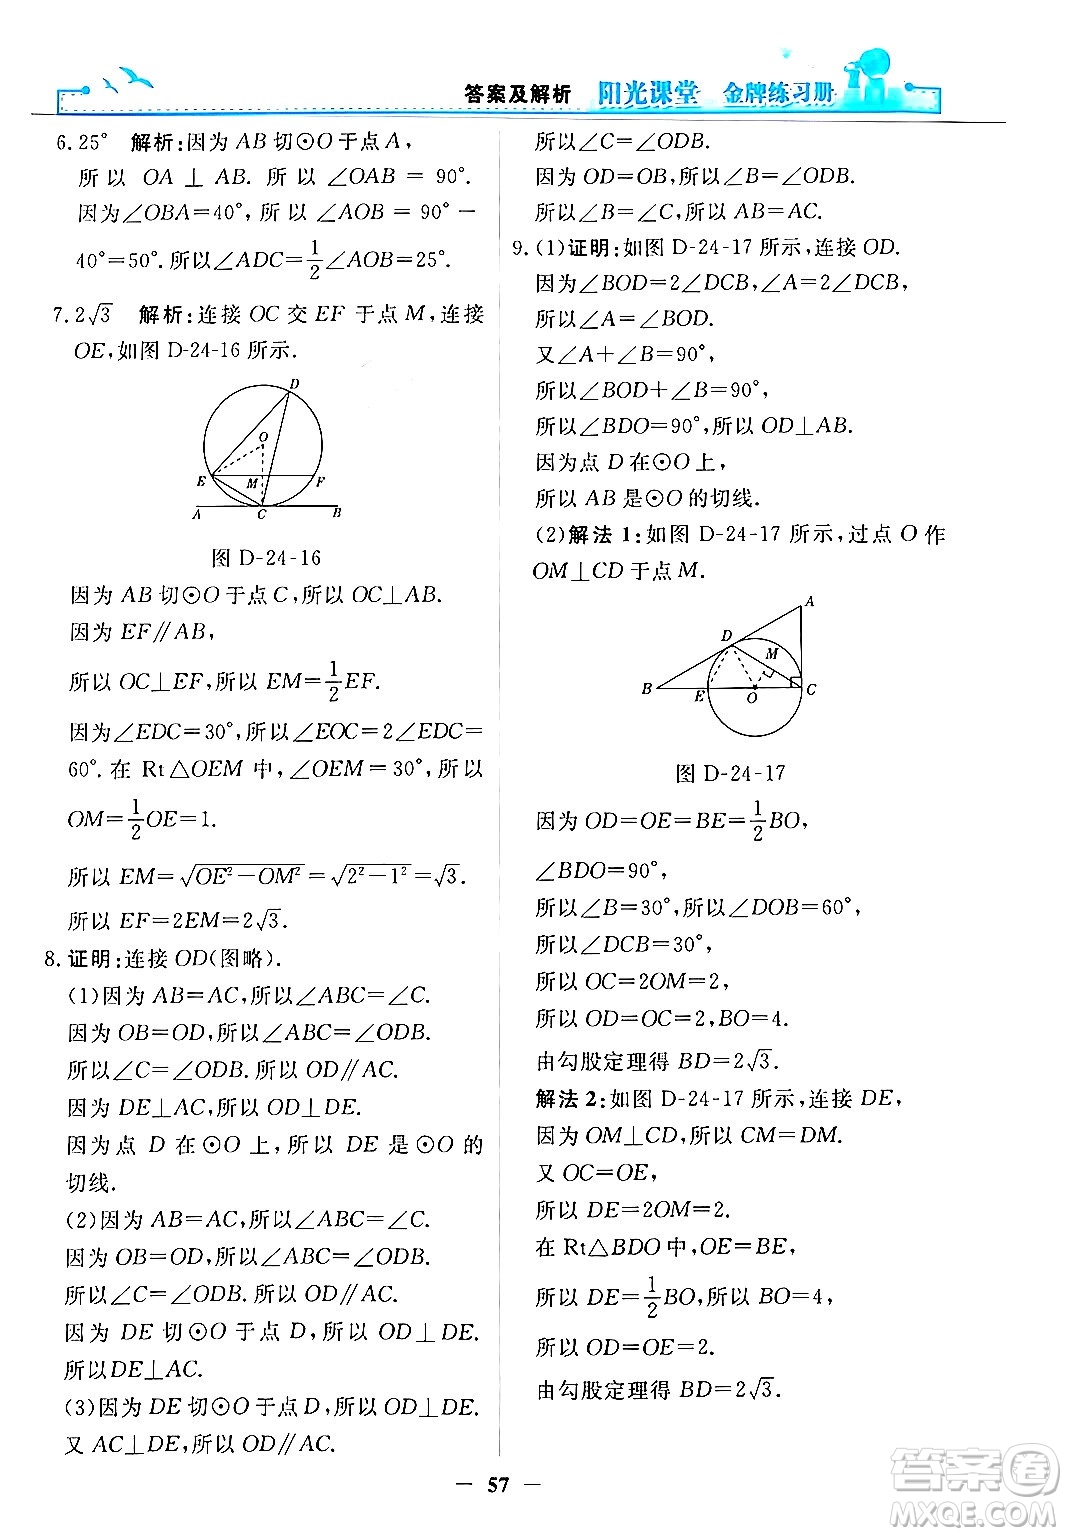 答案及解析 阳光课堂 金牌练习册
6.25° 解析:因为 AB 切⊙O 于点 A,
所以 OA⊥AB. 所以∠OAB=90°.
因为∠OBA=40°,所以∠AOB=90°-
40°=50°.所以∠ADC=1/2∠AOB=25°.
7.2√3 解析:连接 OC 交 EF 于点 M,连接
OE,如图 D-24-16 所示.
D
O
E
M
F
A
C
B
图 D-24-16
因为 AB 切⊙O 于点 C,所以 OC⊥AB.
因为 EF∥AB,
所以 OC⊥EF,所以 EM=1/2EF.
因为∠EDC=30°,所以∠EOC=2∠EDC=
60°.在 Rt△OEM 中,∠OEM=30°,所以
OM=1/2OE=1.
所以 EM=√(OE²-OM²)=√(2²-1²)=√3.
所以 EF=2EM=2√3.
8.证明:连接 OD(图略).
(1)因为 AB=AC,所以∠ABC=∠C.
因为 OB=OD,所以∠ABC=∠ODB.
所以∠C=∠ODB.所以 OD∥AC.
因为 DE⊥AC,所以 OD⊥DE.
因为点 D 在⊙O 上,所以 DE 是⊙O 的
切线.
(2)因为 AB=AC,所以∠ABC=∠C.
因为 OB=OD,所以∠ABC=∠ODB.
所以∠C=∠ODB.所以 OD∥AC.
因为 DE 切⊙O 于点 D,所以 OD⊥DE.
所以DE⊥AC.
(3)因为 DE 切⊙O 于点 D,所以 OD⊥DE.
又 AC⊥DE,所以 OD∥AC.
所以∠C=∠ODB.
因为 OD=OB,所以∠B=∠ODB.
所以∠B=∠C,所以 AB=AC.
9.(1)证明:如图 D-24-17 所示,连接 OD.
因为∠BOD=2∠DCB,∠A=2∠DCB,
所以∠A=∠BOD.
又∠A+∠B=90°,
所以∠BOD+∠B=90°,
所以∠BDO=90°,所以 OD⊥AB.
因为点 D 在⊙O 上,
所以 AB 是⊙O 的切线.
(2)解法 1:如图 D-24-17 所示,过点 O 作
OM⊥CD 于点 M.
A
D
M
B
E
O
C
图 D-24-17
因为 OD=OE=BE=1/2BO,
∠BDO=90°,
所以∠B=30°,所以∠DOB=60°,
所以∠DCB=30°,
所以 OC=2OM=2,
所以 OD=OC=2,BO=4.
由勾股定理得 BD=2√3.
解法 2:如图 D-24-17 所示,连接 DE,
因为 OM⊥CD,所以 CM=DM.
又 OC=OE,
所以 DE=2OM=2.
在 Rt△BDO 中,OE=BE,
所以 DE=1/2BO,所以 BO=4,
所以 OD=OE=2.
由勾股定理得 BD=2√3.
— 57 —
答案卷
MXQE.COM